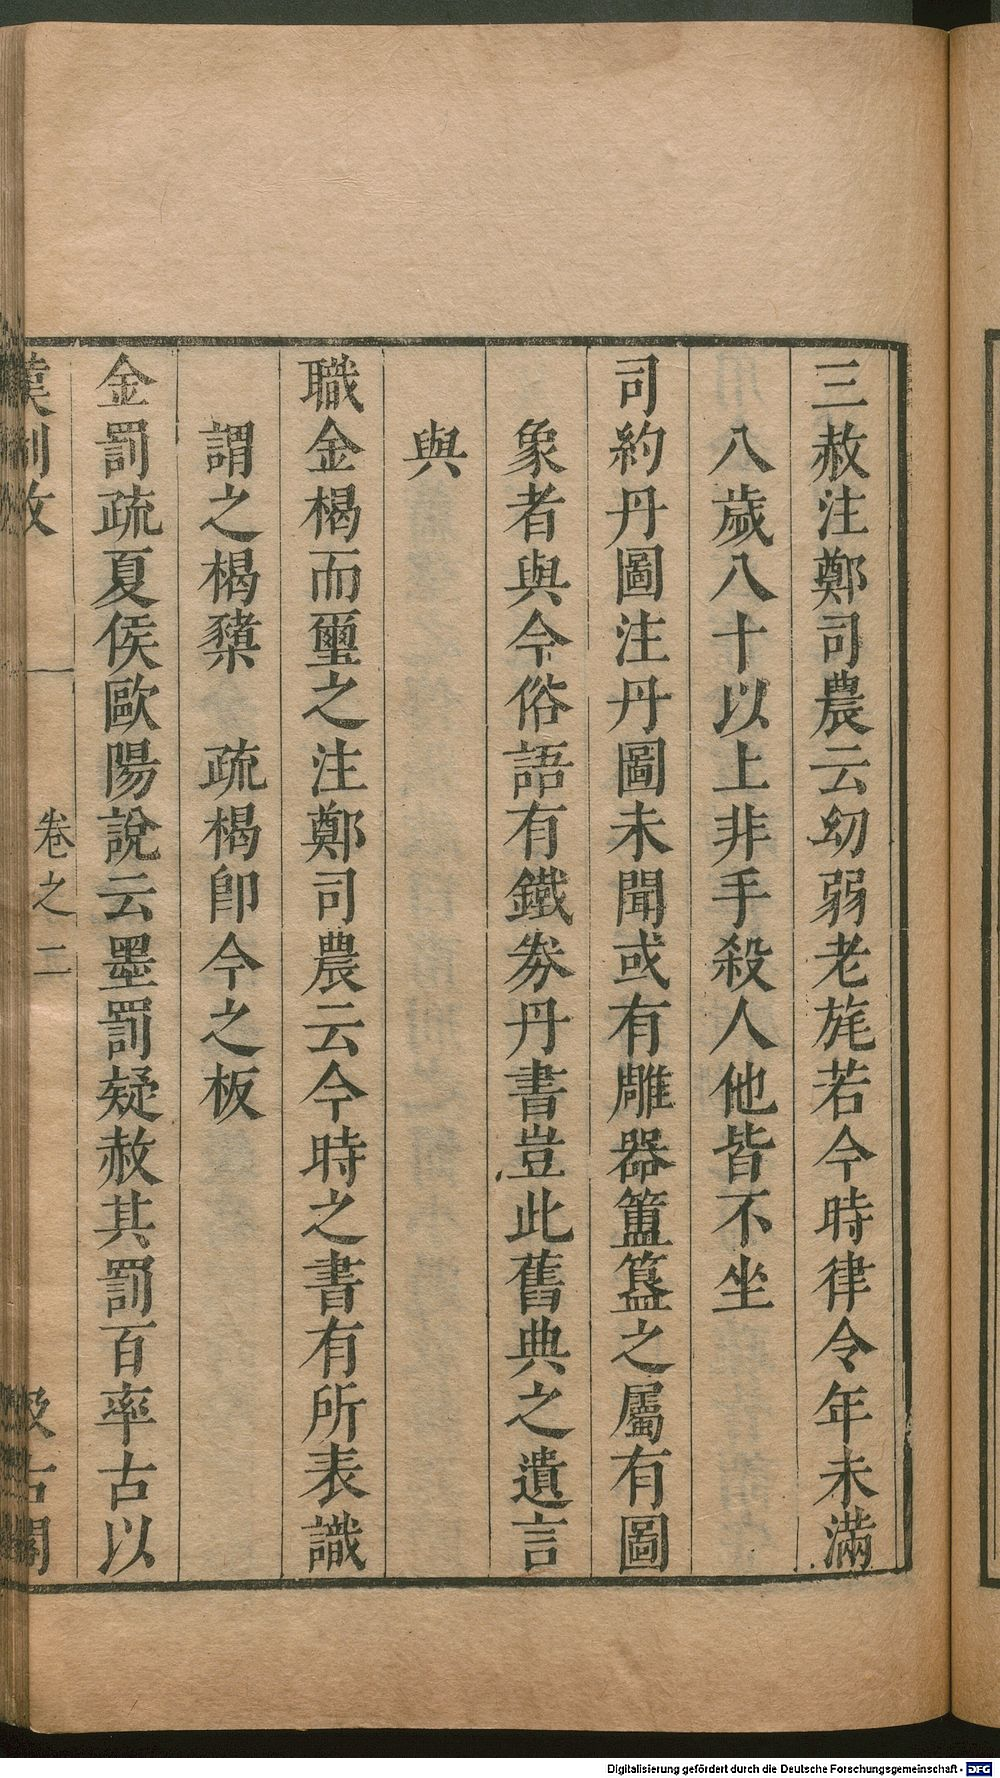 三赦注鄭司農云幼弱老旄若今時律令年未滿
八歲八十以上非手殺人他皆不坐
司約丹圖注丹圖未聞或有雕器簠簋之屬有圖
象者與今俗語有鐵券丹書豈此舊典之遺言
與
職金楬而璽之注鄭司農云今時之書有所表識
謂之楬櫫　疏楬卽今之板
金罰疏夏侯歐陽說云墨罰疑赦其罰百率古以
漢制攷　卷之二　汲古閣
Digitalisierung gefördert durch die Deutsche Forschungsgemeinschaft - DFG